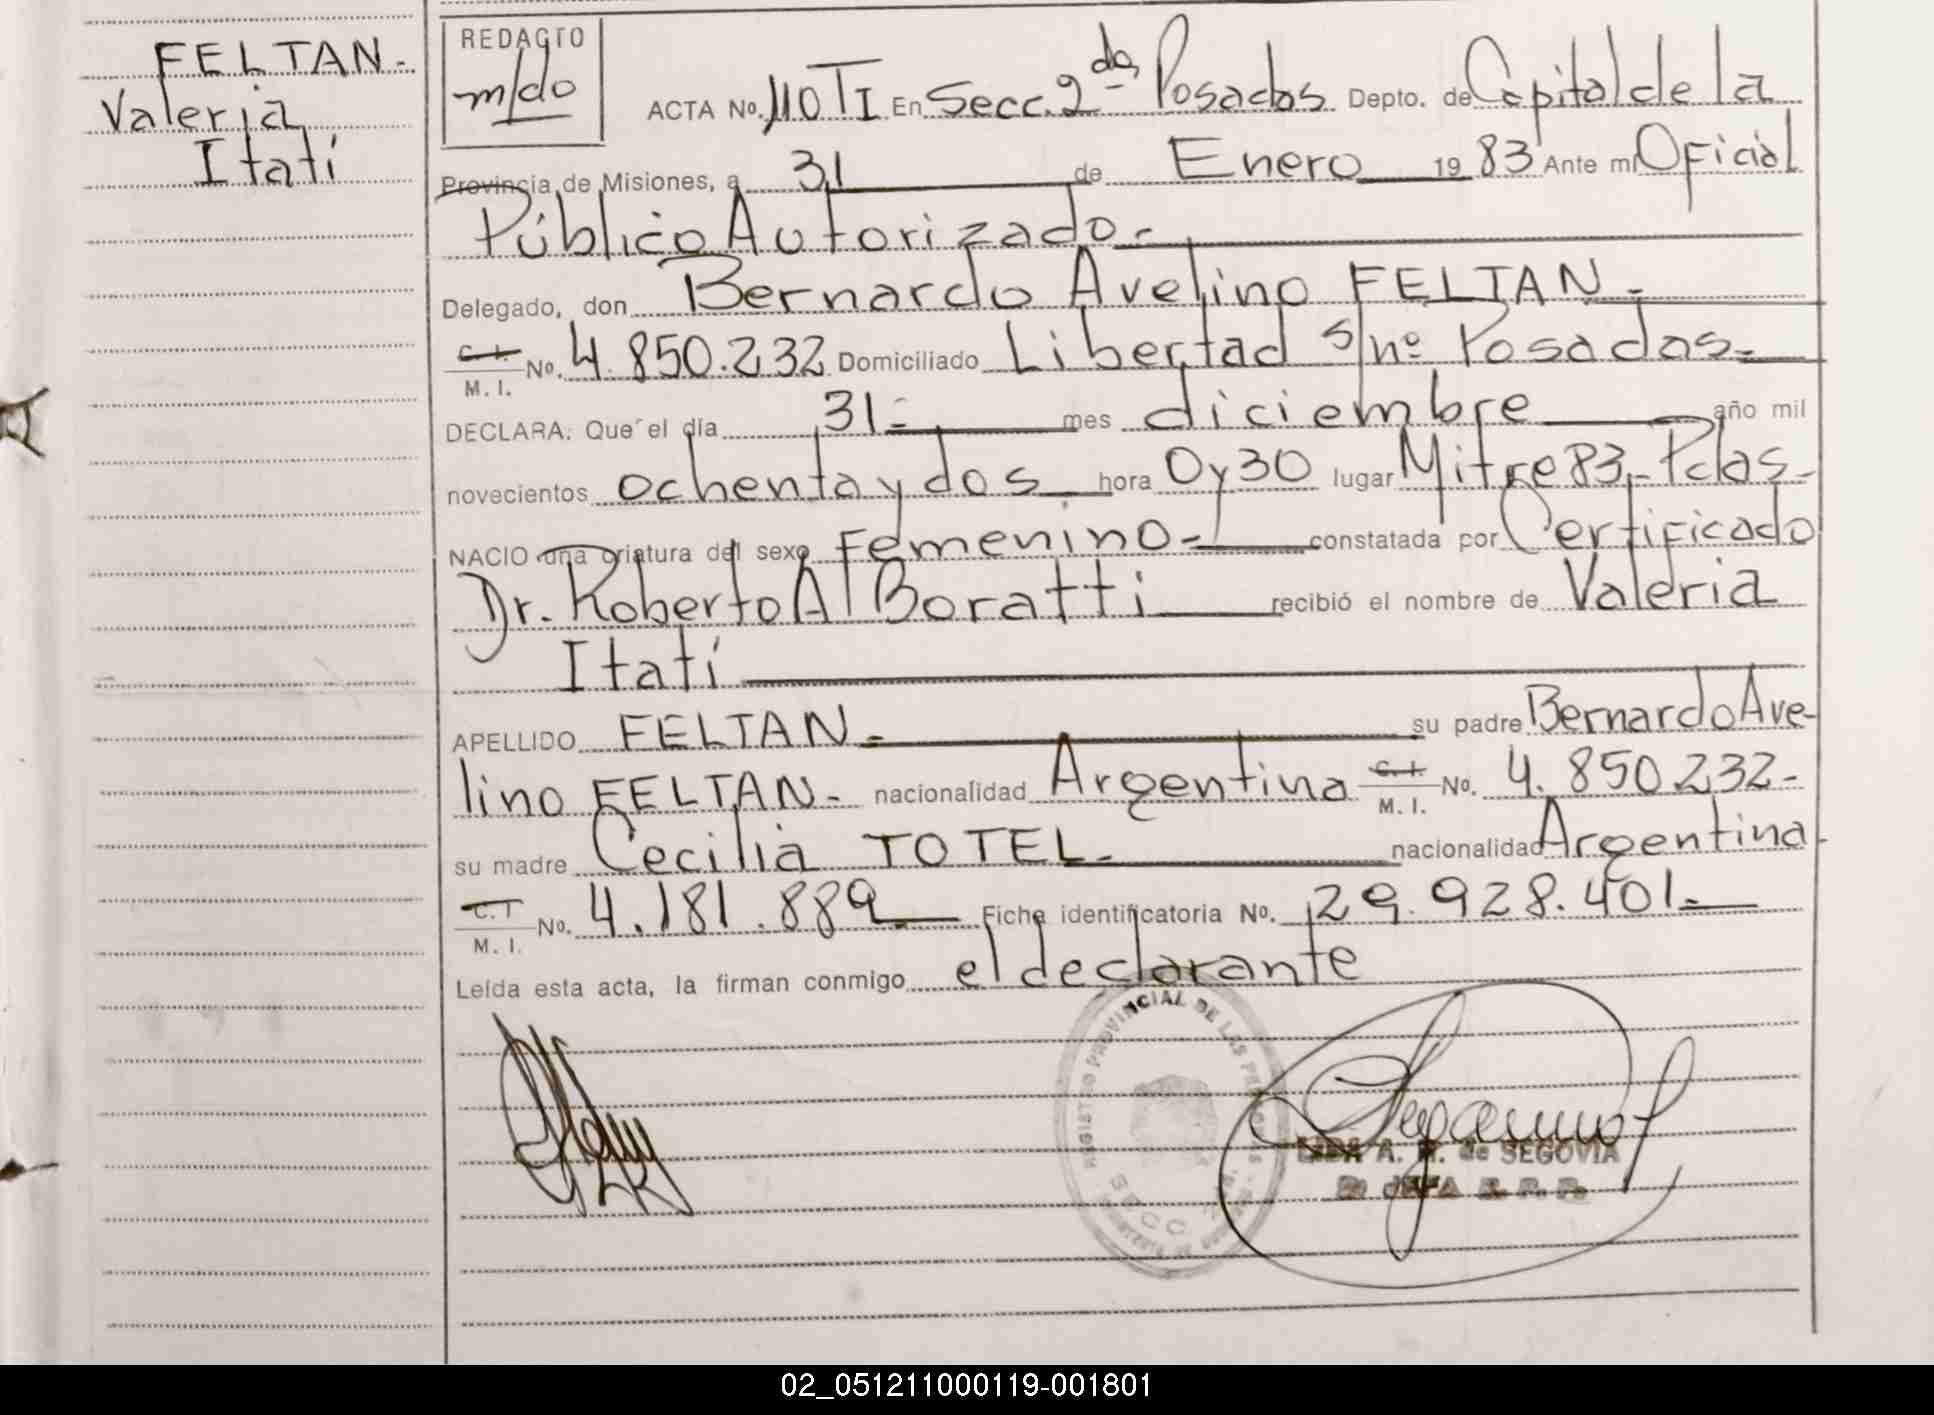 FELTAN.
Valeria
Itatí
REDACTO
m/do
ACTA No. 110 TI En Secc. 2da Posadas Depto. de Capital de la
Provincia de Misiones, a 31 de Enero 1983 Ante mi Oficial
Público Autorizado.-
Delegado, don Bernardo Avelino FELTAN.-
C.I. M.I. No. 4.850.232 Domiciliado Libertad s/nº Posadas.-
DECLARA: Que el día 31.- mes diciembre año mil
novecientos ochenta y dos hora 0 y 30 lugar Mitre 83,- Pdas.-
NACIO una criatura del sexo Femenino.- constatada por Certificado
Dr. Roberto Al Boratti recibió el nombre de Valeria
Itatí
APELLIDO FELTAN.- su padre Bernardo Ave-
lino FELTAN.- nacionalidad Argentina C.I. M.I. No. 4.850.232-
su madre Cecilia TOTEL.- nacionalidad Argentina.
C.I. M.I. No. 4.181.889.- Ficha identificatoria No. 29.928.401.-
Leída esta acta, la firman conmigo el declarante
REGISTRO PROVINCIAL DE LAS PERSONAS
SECC
A. R. de SEGOVIA
JEFA R. P. P.
02_051211000119-001801